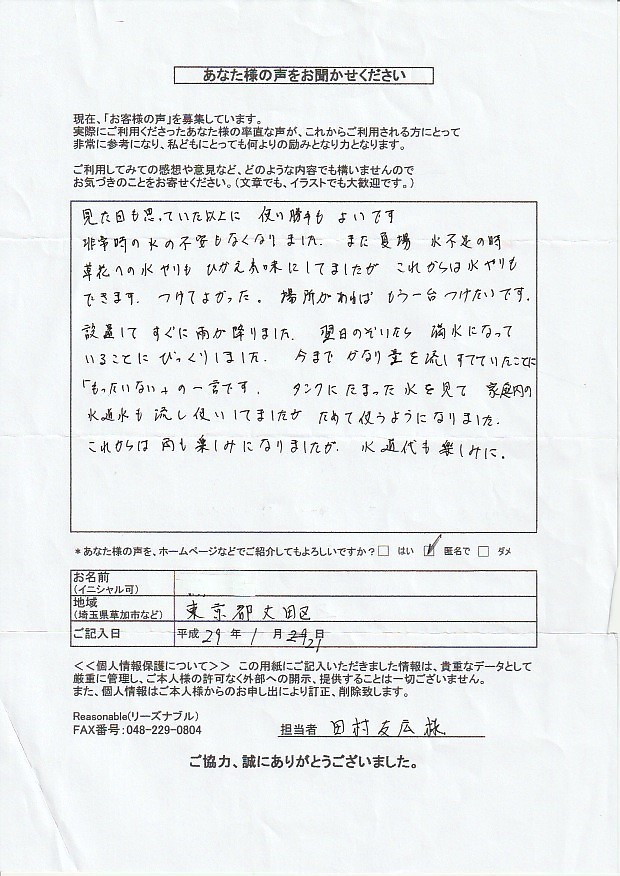 あなた様の声をお聞かせください
現在、「お客様の声」を募集しています。
実際にご利用くださったあなた様の率直な声が、これからご利用される方にとって
非常に参考になり、私どもにとっても何よりの励みとなり力となります。
ご利用してみての感想や意見など、どのような内容でも構いませんので
お気づきのことをお寄せください。(文章でも、イラストでも大歓迎です。)
見た目も思っていた以上に 使い勝手も よいです
非常時の水の不安もなくなりました. また夏場 水不足の時
草花への水やりも ひかえ気味にしてましたが これからは水やりも
できます. つけてよかった。 場所があれば もう一台つけたいです.
設置して すぐに雨が降りました. 翌日のぞいたら 満水になって
いることに びっくりしました. 今まで かなり量を流しすてていたことに
「もったいない」の一言です. タンクにたまった水を見て 家庭内の
水道水も流し使いしてましたが ためて使うようになりました.
これからは 雨も楽しみになりましたが. 水道代も楽しみに.
*あなた様の声を、ホームページなどでご紹介してもよろしいですか?□ はい ☑ 匿名で □ ダメ
お名前
(イニシャル可)
地域
(埼玉県草加市など) 東京都大田区
ご記入日 平成 29 年 1 月 21日
<<個人情報保護について>> この用紙にご記入いただきました情報は、貴重なデータとして
厳重に管理し、ご本人様の許可なく外部への開示、提供することは一切ございません。
また、個人情報はご本人様からのお申し出により訂正、削除致します。
Reasonable(リーズナブル)
FAX番号:048-229-0804
担当者 田村友広 様
ご協力、誠にありがとうございました。